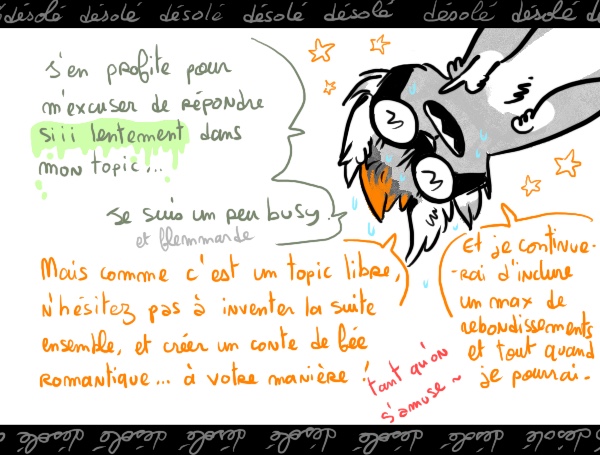 désolé désolé désolé désolé désolé désolé désolé dé
J'en profite pour
m'excuser de répondre
siii lentement dans
mon topic...
Je suis un peu busy.
et flemmarde
Mais comme c'est un topic libre,
n'hésitez pas à inventer la suite
ensemble, et créer un conte de fée
romantique... à votre manière !
tant qu'on
s'amuse ~
Et je continue-
-rai d'inclure
un max de
rebondissements
et tout quand
je pourrai.
désolé désolé désolé désolé désolé désolé désolé